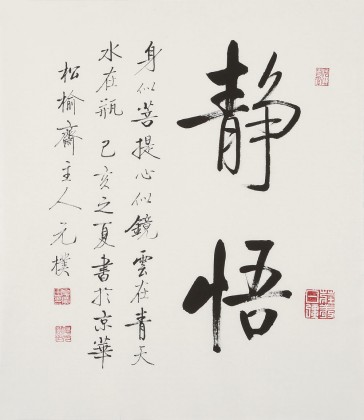 静悟
身似菩提心似鏡雲在青天
水在瓶己亥之夏書於京華
松榆齋主人元樸